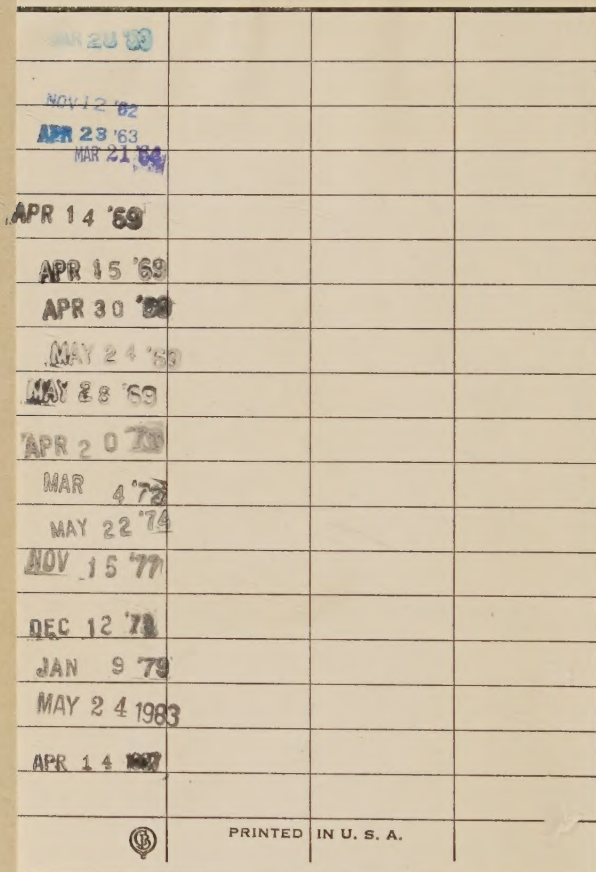 MAR 28
NOV 12 '62
APR 23 '63
MAR 21 '64
APR 14 '69
APR 15 '69
APR 30
MAY 24 '69
MAY 28 '69
APR 20
MAR 4
MAY 22 '74
NOV 15 '77
DEC 12 '78
JAN 9 '79
MAY 24 1983
APR 14
PRINTED IN U. S. A.